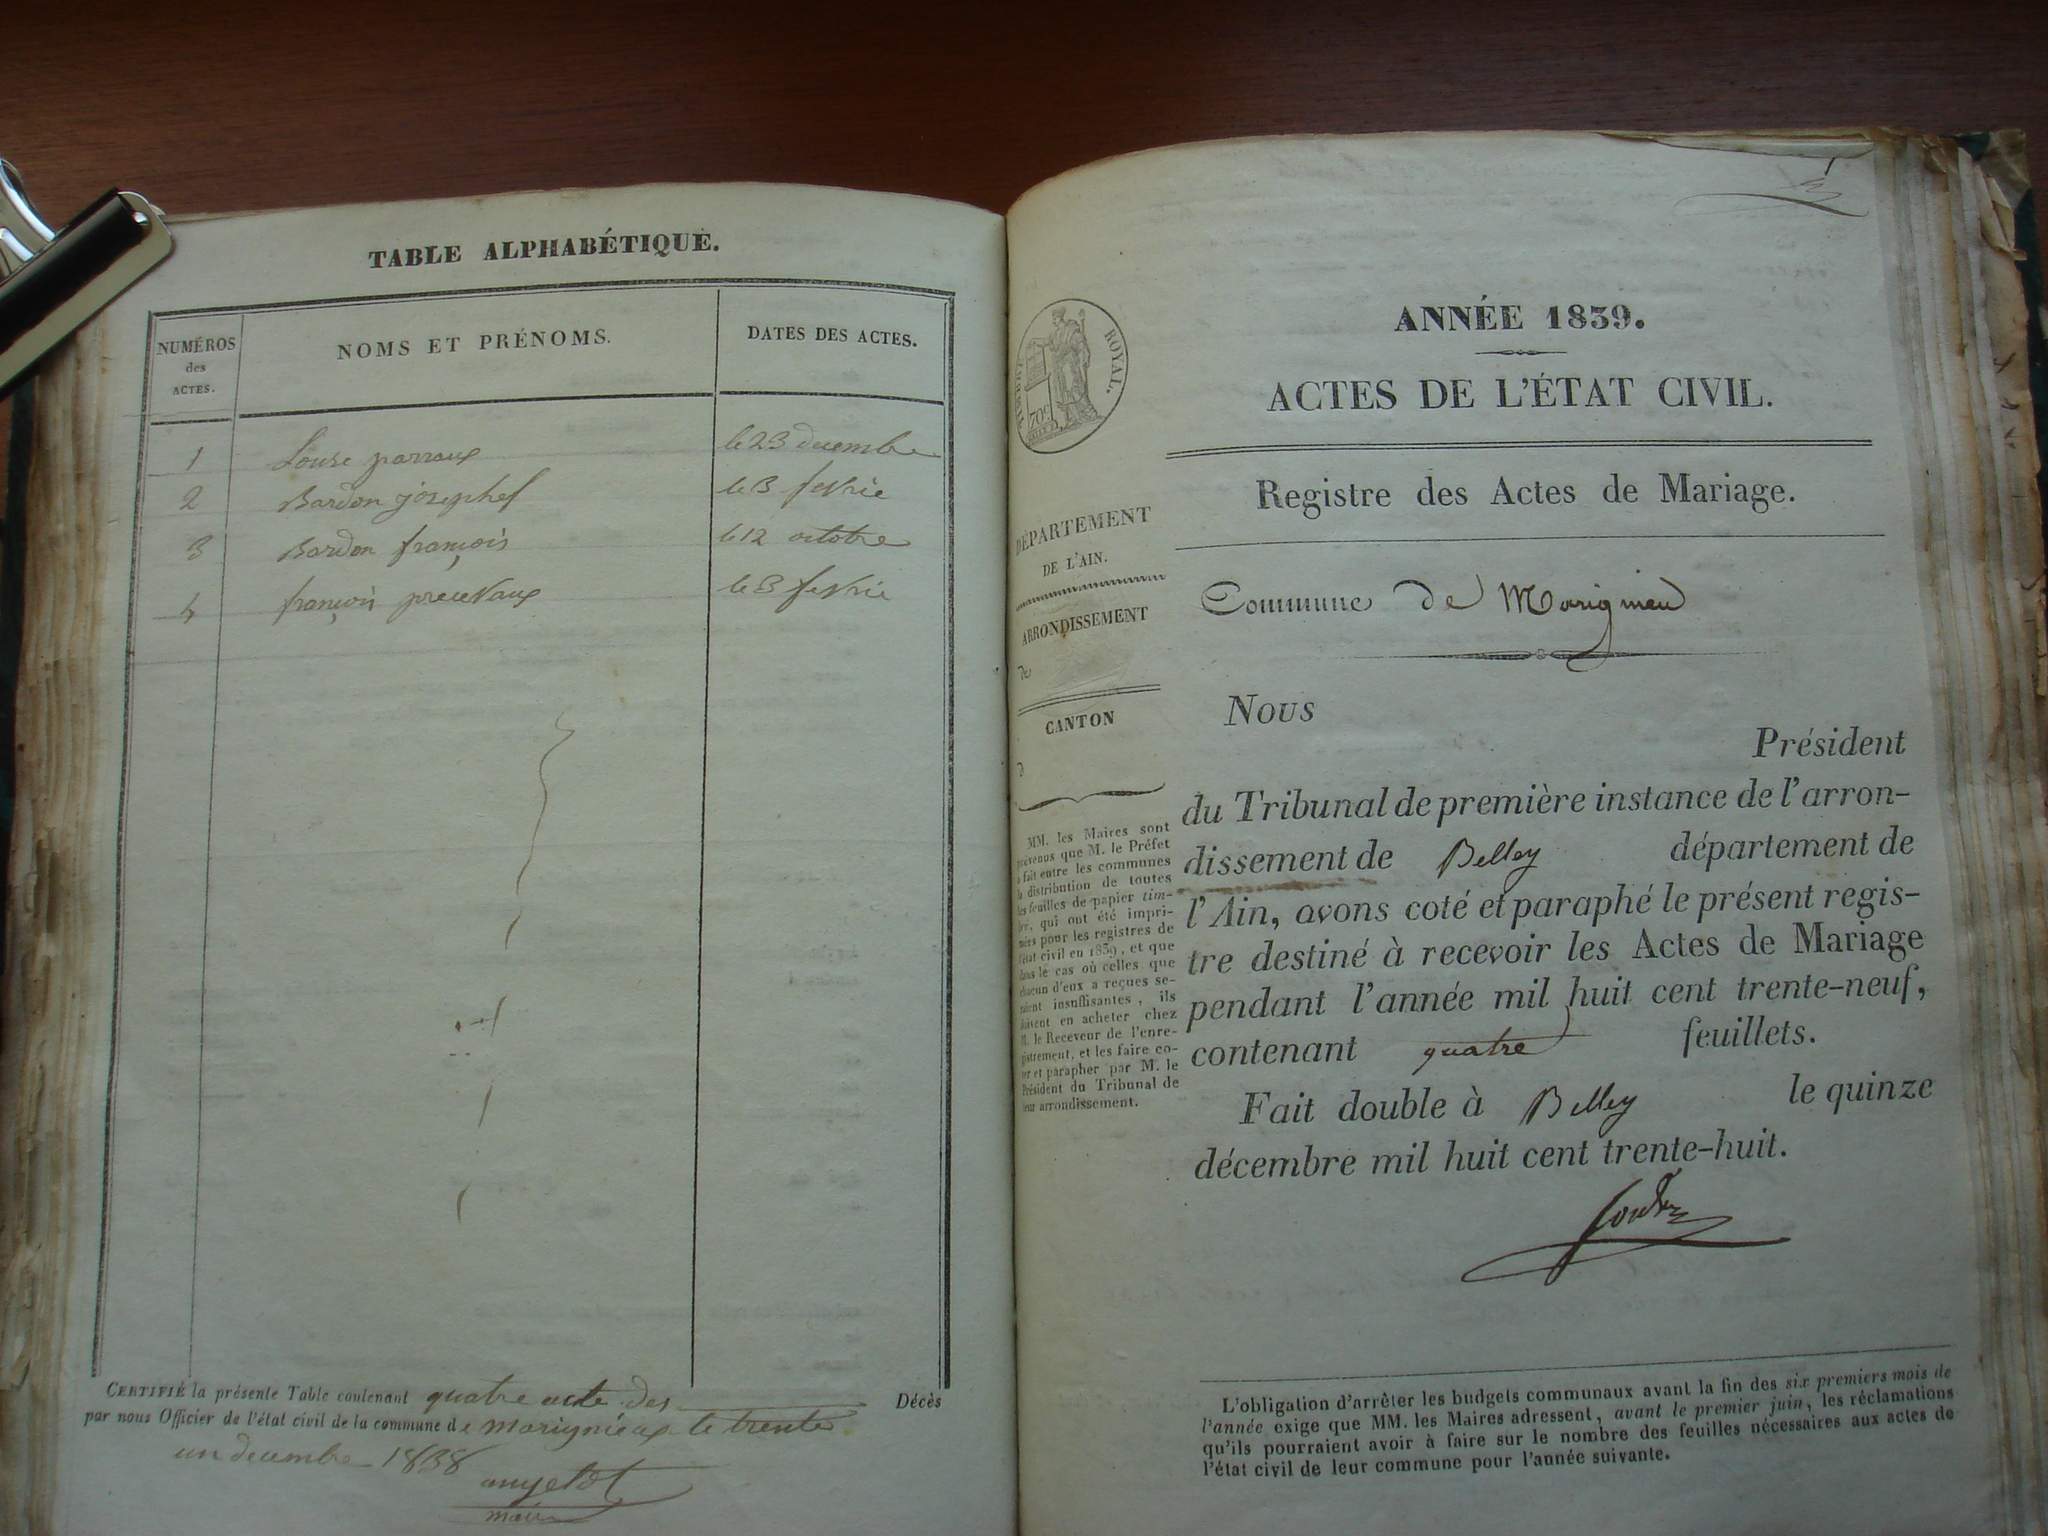 TABLE ALPHABÉTIQUE.
NUMÉROS des ACTES.
NOMS ET PRÉNOMS.
DATES DES ACTES.
1 Louise parraux le 23 decembre
2 Bardon josephef le 3 fevrie
3 Bardon françois le 12 octobre
4 françois precevaux le 3 fevrie
CERTIFIÉ la présente Table contenant quatre acte des Décès
par nous Officier de l'état civil de la commune de marignieux le trente
un decembre 1838
angelot
maire
ROYAL.
70c
DÉPARTEMENT
DE L'AIN.
ARRONDISSEMENT
de
CANTON
d
MM. les Maires sont
prévenus que M. le Préfet
a fait entre les communes
la distribution de toutes
les feuilles de papier tim-
bré, qui ont été impri-
mées pour les registres de
l'état civil en 1839, et que
dans le cas où celles que
chacun d'eux a reçues se-
raient insuffisantes, ils
doivent en acheter chez
M. le Receveur de l'enre-
gistrement, et les faire co-
ter et parapher par M. le
Président du Tribunal de
leur arrondissement.
ANNÉE 1839.
ACTES DE L'ÉTAT CIVIL.
Registre des Actes de Mariage.
Commune de Marignieu
Nous
Président
du Tribunal de première instance de l'arron-
dissement de Belley département de
l'Ain, avons coté et paraphé le présent regis-
tre destiné à recevoir les Actes de Mariage
pendant l'année mil huit cent trente-neuf,
contenant quatre feuillets.
Fait double à Belley le quinze
décembre mil huit cent trente-huit.
L'obligation d'arrêter les budgets communaux avant la fin des six premiers mois de
l'année exige que MM. les Maires adressent, avant le premier juin, les réclamations
qu'ils pourraient avoir à faire sur le nombre des feuilles nécessaires aux actes de
l'état civil de leur commune pour l'année suivante.